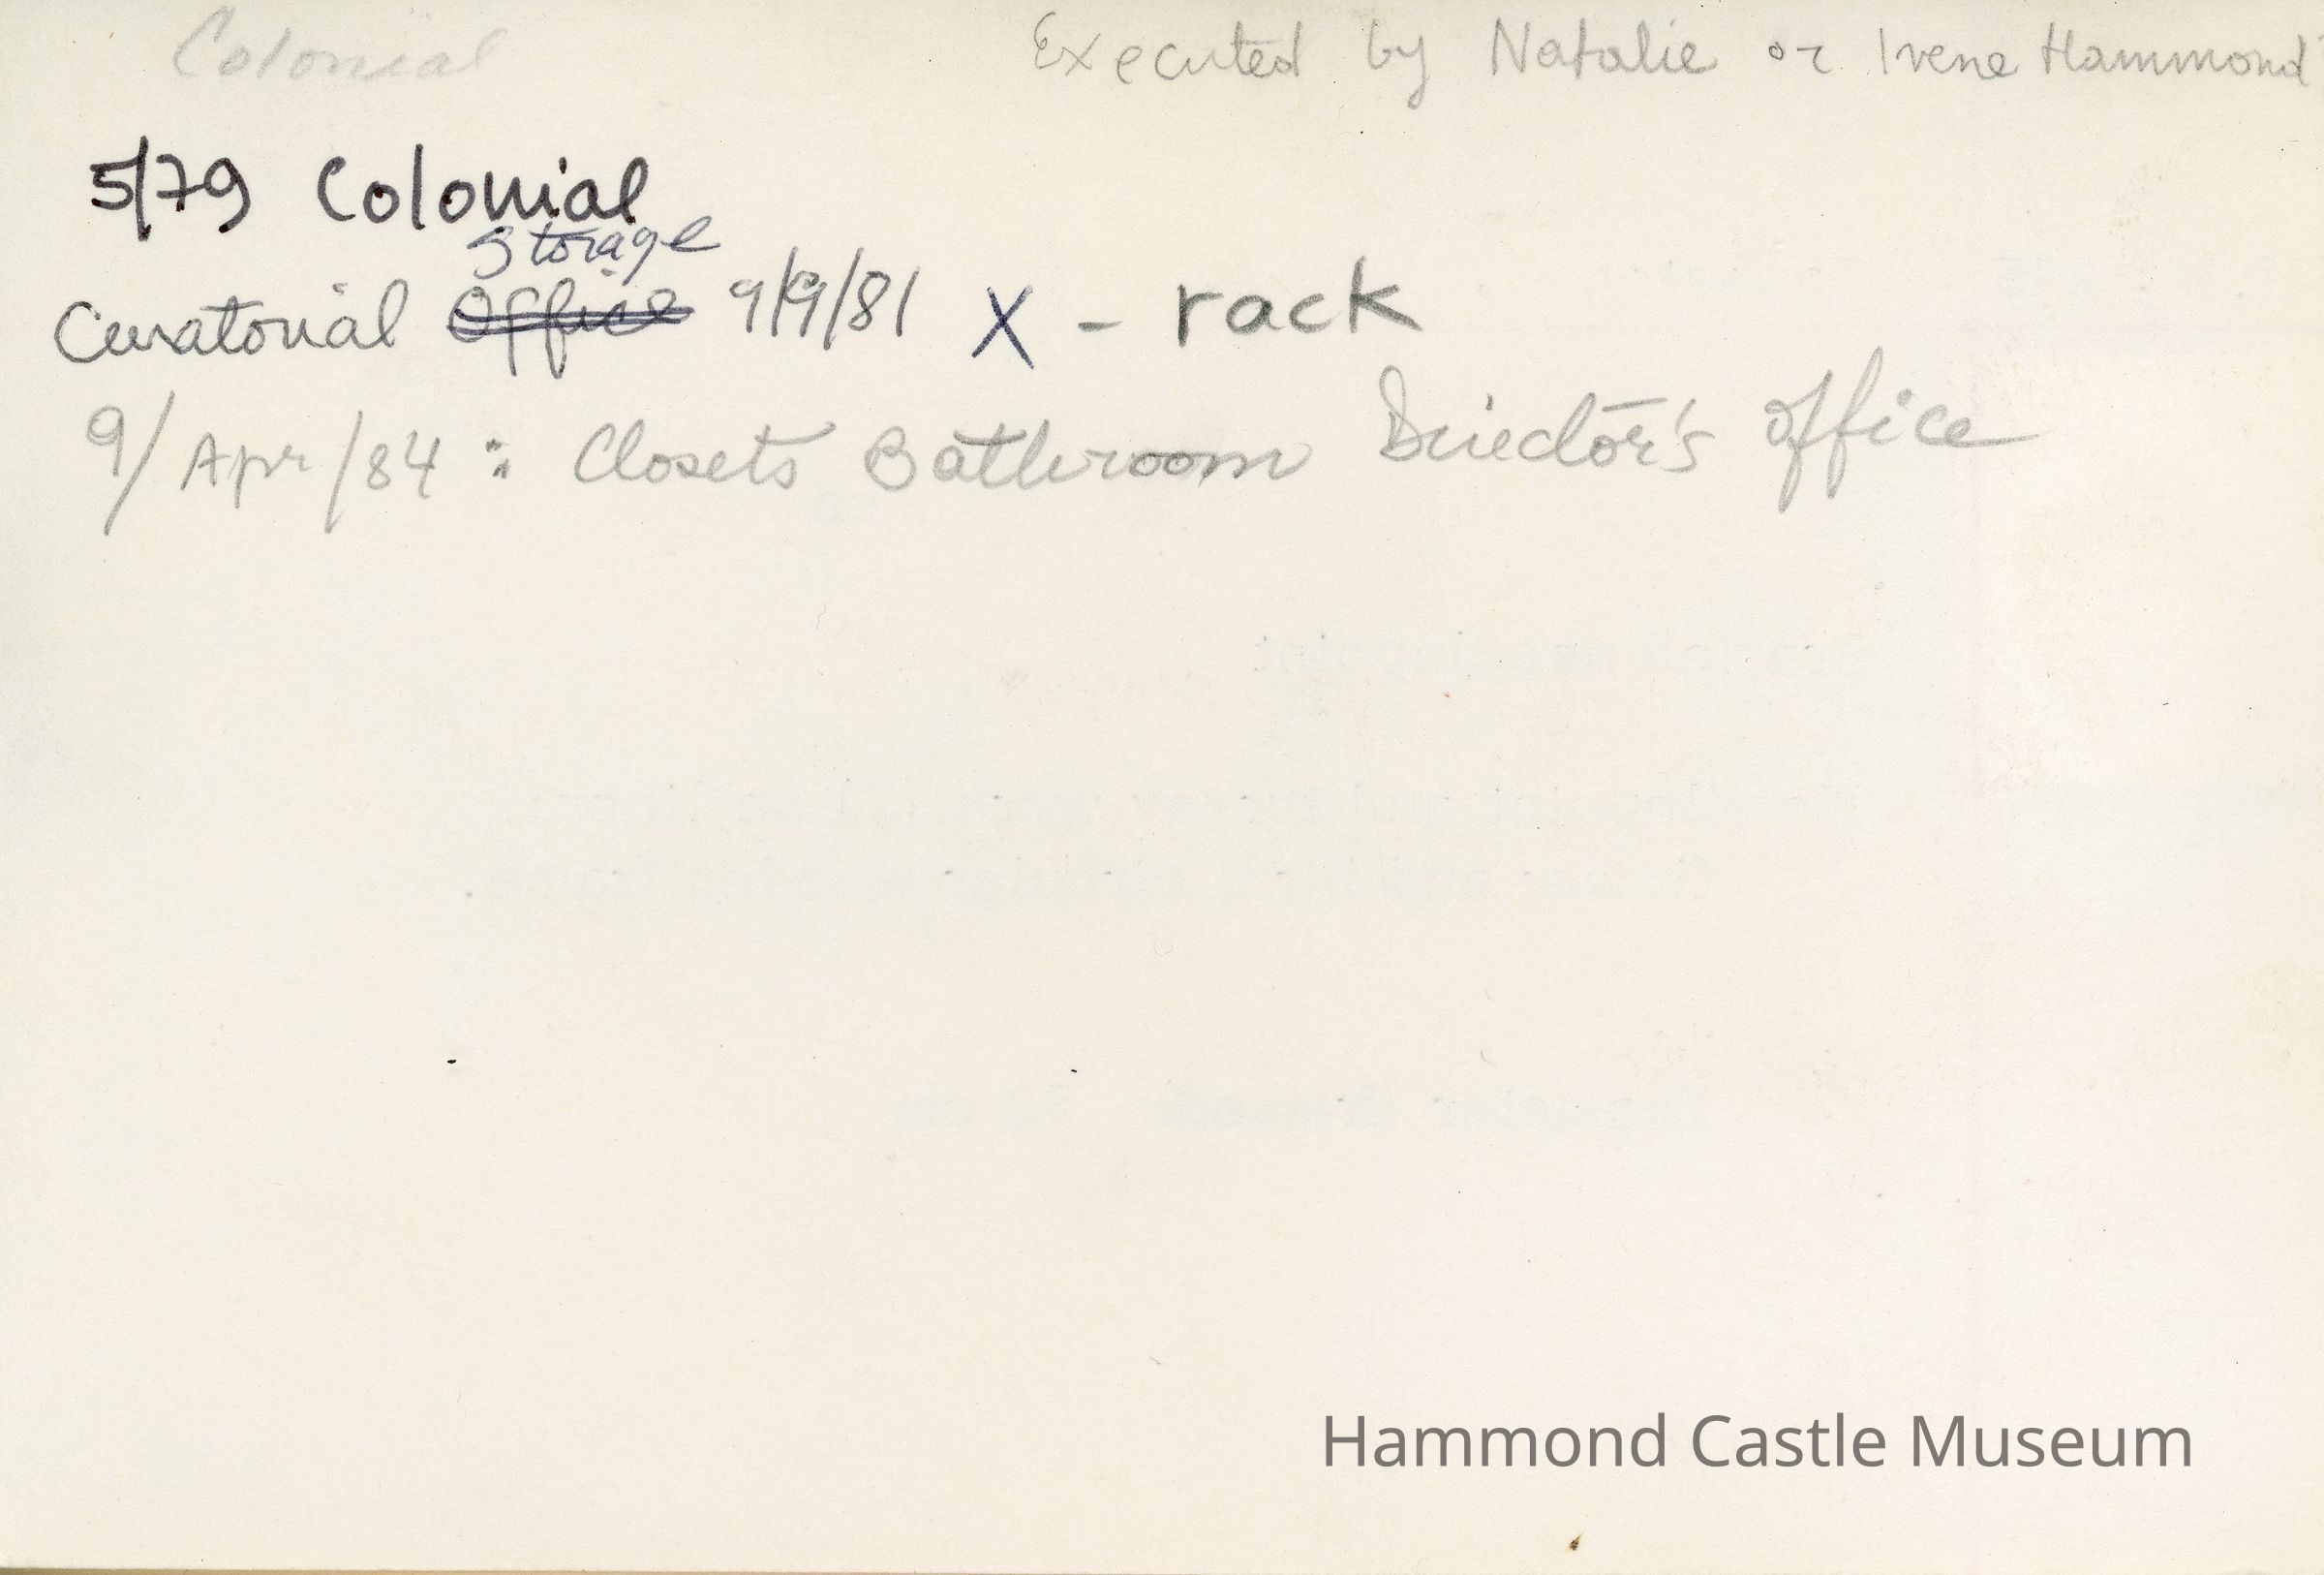 Colonial Executed by Natalie or Irene Hammond
5/79 Colonial
Storage
Curatorial Office 9/9/81 X - rack
9/Apr/84 : Closets Bathroom Director's Office
Hammond Castle Museum